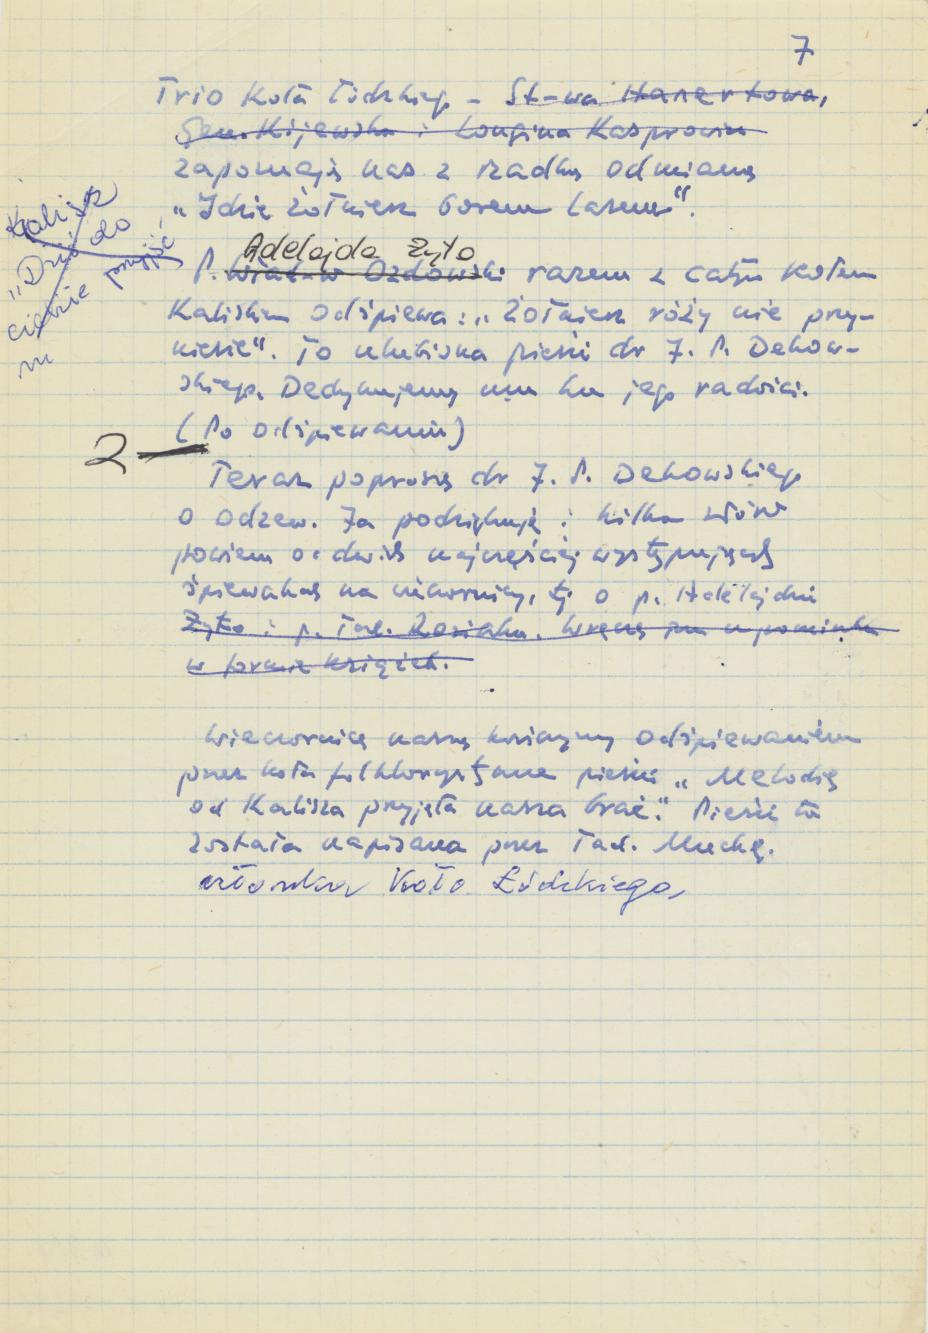 7
Trio Koła Łódzkiego - St-wa Hanertowa,
Gen. Kijewska i Longina Kasprowicz
zapoznają nas z rzadką odmianą
"Idzie żołnierz borem lasem".
Kalisz
"Dziś do
ciebie przyjść
Adelajda Żyto
P. Ozdowski razem z całym kołem
Kaliskim odśpiewa: "Żołnierz róży nie przy-
niesie". To ulubiona pieśń dr J. P. Dekow-
skiego. Dedykujemy mu ku jego radości.
(Po odśpiewaniu)
2
Teraz poproszę dr J. P. Dekowskiego
o odzew. Ja podziękuję i kilka słów
powiem o dwóch najczęściej występujących
śpiewakach na wieczornicy, tj o p. Adelajdzie
Żyto i p. Tad. Rosiaku. Wręczę im upominki
w formie książek.
Wieczornicę naszą kończymy odśpiewaniem
przez koła folklorystyczne pieśni "Melodię
od Kalisza przyjęła nasza brać". Pieśń ta
została napisana przez Tad. Muchę.
członka Koła Łódzkiego,